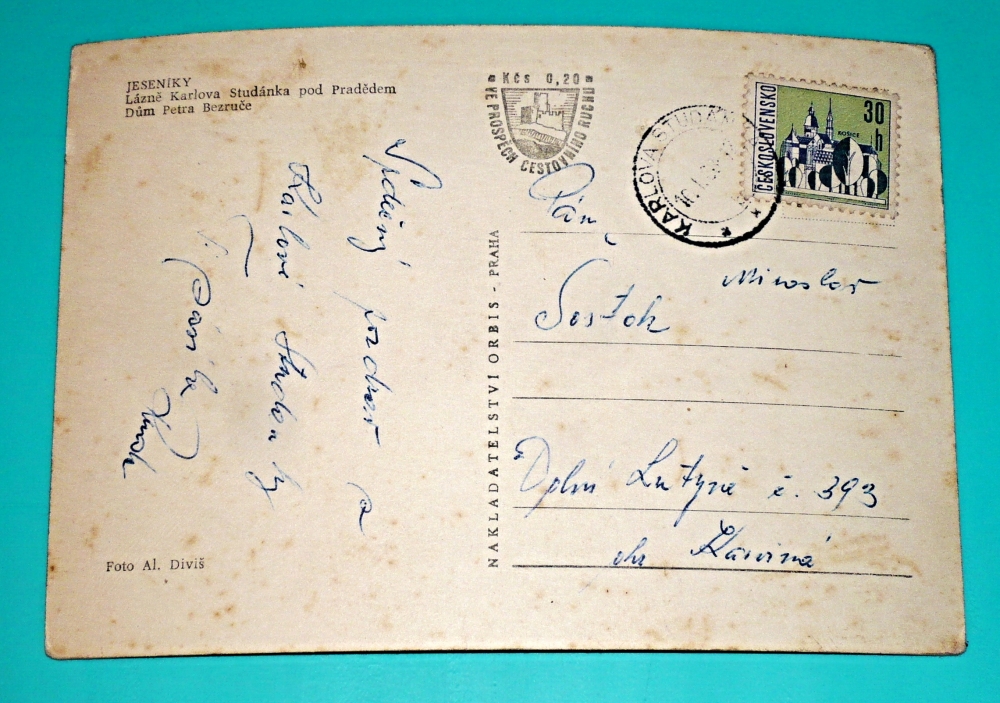 JESENÍKY
Lázně Karlova Studánka pod Pradědem
Dům Petra Bezruče
Srdečný pozdrav z
Karlovi Studánky
Foto Al. Diviš
NAKLADATELSTVÍ ORBIS - PRAHA
Kčs 0,20
VE PROSPĚCH CESTOVNÍHO RUCHU
KARLOVA STUDÁNKA
ČESKOSLOVENSKO
30 h
KOŠICE
Pán
Miroslav
Šosták
Dolní Lutyně č. 393
okr Karviná